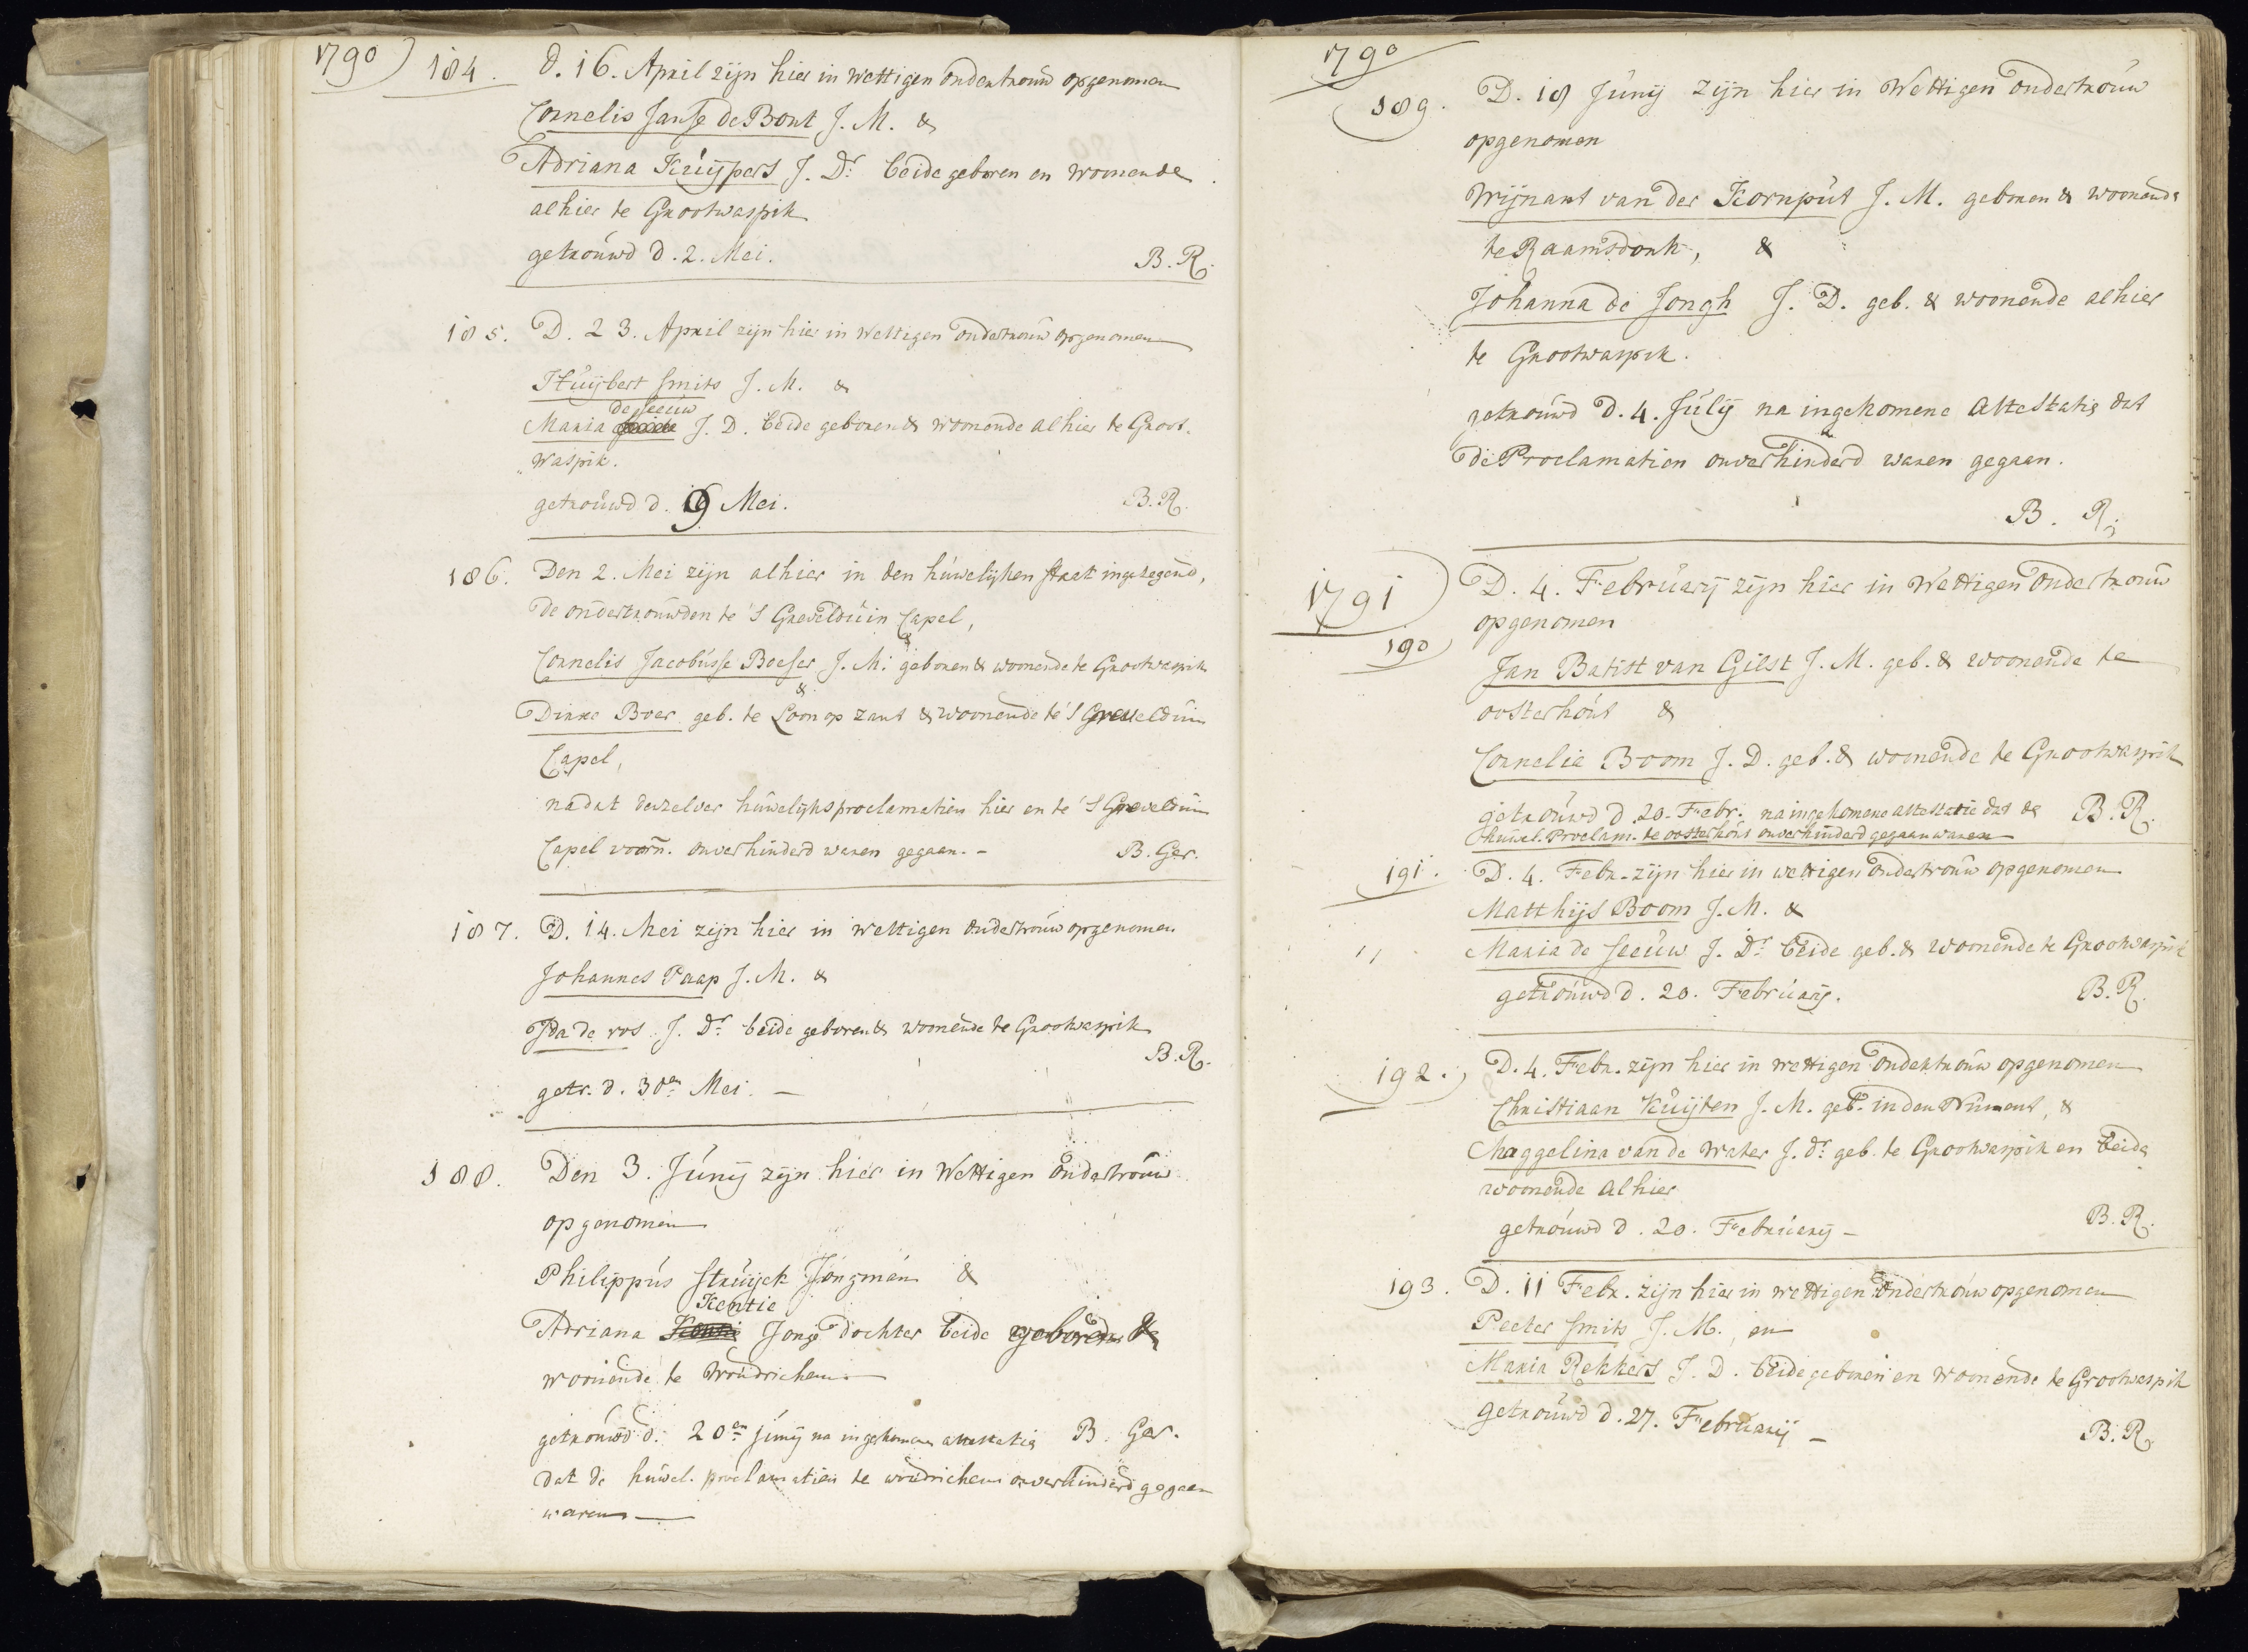 1790) 184. d. 16. April zijn hier in wettigen ondertrouw opgenomen
Cornelis Janse de Bont J. M. &
Adriana Kuijpers J. Dr. beide geboren en woonende
alhier te Grootwaspik
getrouwd d. 2. Mei. B. R.
185. D. 23. April zijn hier in wettigen ondertrouw opgenomen
Huijbert Smits J. M. &
de Leeuw
Maria J. D. beide geboren & woonende alhier te Groot-
„Waspik.
getrouwd d. 9 Mei. B. R.
186. Den 2. Mei zijn alhier in den huwelijken staat ingezegend,
de ondertrouwden te 'S Grevelduin Capel,
Cornelis Jacobusse Boeser J. M. geboren & woonende te Grootwaspik
&
Dirke Boer geb. te Loon op zant & woonende te 'S Grevelduin
Capel,
nadat derzelver huwelijksproclamatien hier en te 'S Grevelduin
Capel voorn. onverhinderd waren gegaan. - B. Ger.
187. D. 14. Mei zijn hier in wettigen ondertrouw opgenomen
Johannes Paap J. M. &
Ida de ros J. Dr. beide geboren & woonende te Grootwaspik
B. R.
getr. d. 30en Mei. -
188. Den 3. Junij zijn hier in Wettigen ondertrouw
opgenomen
Philippus Struijck Jongman &
Kentie
Adriana Jonge dochter beide geboren &
woonende te Woudrichem
getrouwd d. 20en junij na ingekomen attestatie B. Ger.
dat de huwel. proclamatien te woudrichem onverhinderd gegaan
waren
1790
189. D. 18 Junij zijn hier in Wettigen ondertrouw
opgenomen
Wijnant van der Kornput J. M. geboren & woonende
te Raamsdonk, &
Johanna de Jongh J. D. geb. & woonende alhier
te Grootwaspik.
getrouwd d. 4. Julij na ingekomene attestatie dat
de Proclamatien onverhinderd waren gegaan.
B. R.
1791) D. 4. Februarij zijn hier in Wettigen ondertrouw
190 opgenomen
Jan Batist van Gilst J. M. geb. & woonende te
oosterhout &
Cornelia Boom J. D. geb. & woonende te Grootwaspik
getrouwd d. 20. Febr. na ingekomene attestatie dat de B. R.
huwel. Proclam. te oosterhout onverhinderd gegaan waren
191. D. 4. Febr. zijn hier in wettigen ondertrouw opgenomen
Matthijs Boom J. M. &
Maria de Leeuw J. Dr. beide geb. & woonende te Grootwaspik
getrouwd d. 20. Februarij. B. R.
192. D. 4. Febr. zijn hier in wettigen ondertrouw opgenomen
Christiaan Kuijten J. M. geb. in den , &
Maggelina van de Water J. dr. geb. te Grootwaspik en beide
woonende alhier
getrouwd d. 20. Februarij - B. R.
193. D. 11 Febr. zijn hier in wettigen ondertrouw opgenomen
Peeter Smits J. M., en
Maria Rekkers J. D. beide geboren en woonende te Grootwaspik
getrouwd d. 27. Februarij - B. R.